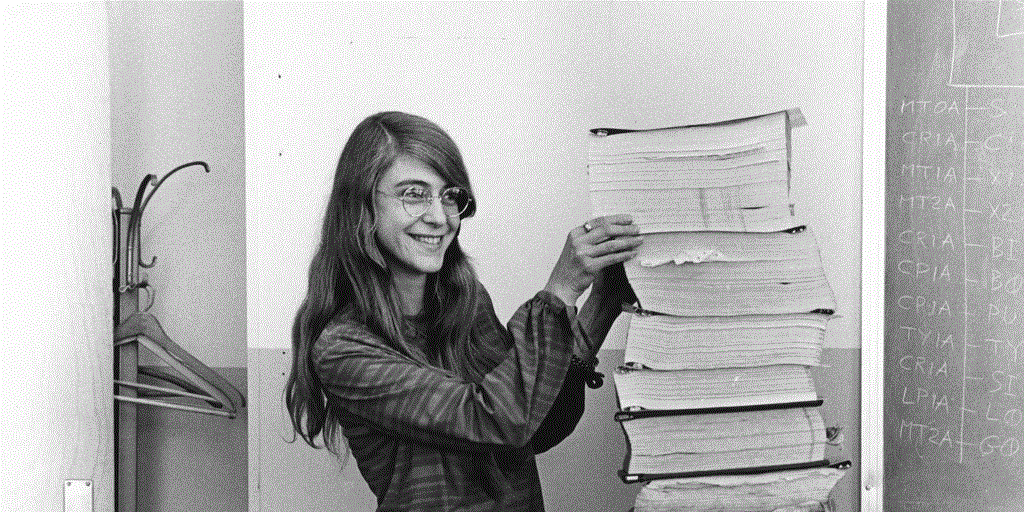 MTOA — S
CR1A — C
MT1A — X1
MT2A — X2
CR1A — BI
CP1A — BØ
CPJA — PU
TY1A — TY
CR1A — SI
LP1A — LO
MT2A — GØ